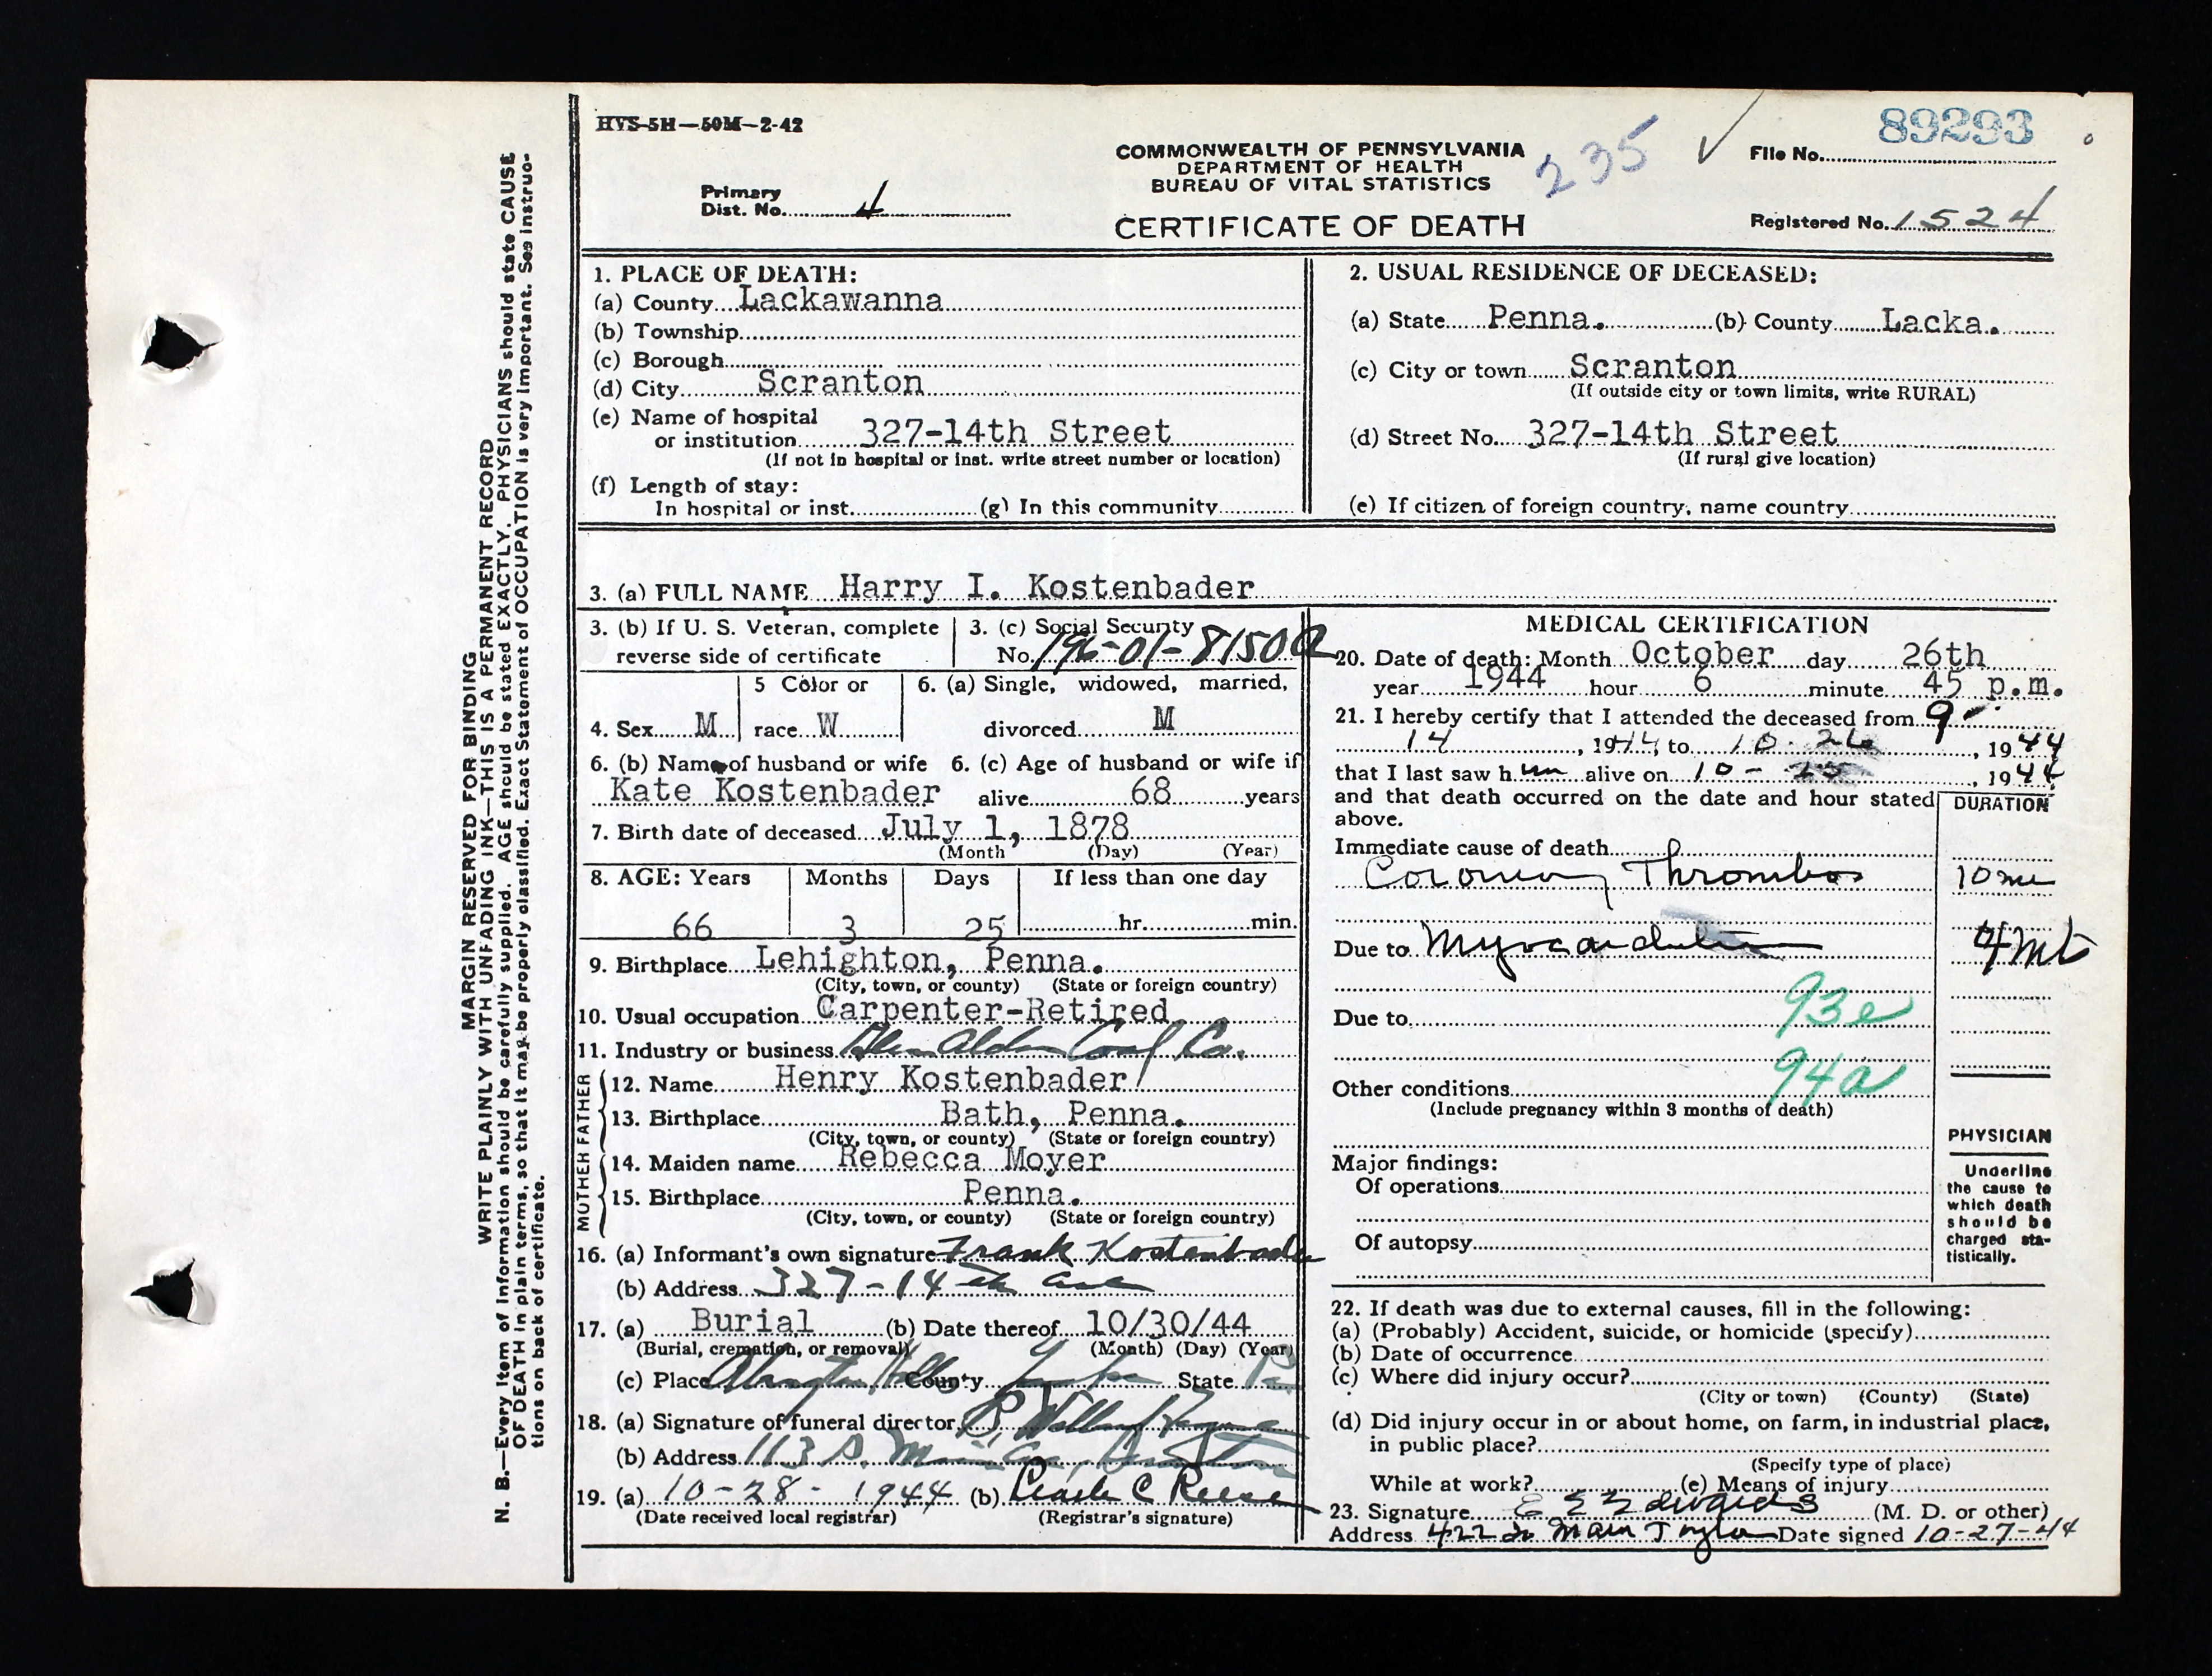 HVS-5H—50M—2-42
COMMONWEALTH OF PENNSYLVANIA
DEPARTMENT OF HEALTH
BUREAU OF VITAL STATISTICS
CERTIFICATE OF DEATH
235
89293
File No.
Primary
Dist. No. 4
Registered No. 1524
MARGIN RESERVED FOR BINDING
WRITE PLAINLY WITH UNFADING INK—THIS IS A PERMANENT RECORD
N. B.—Every item of information should be carefully supplied. AGE should be stated EXACTLY. PHYSICIANS should state CAUSE
OF DEATH in plain terms, so that it may be properly classified. Exact Statement of OCCUPATION is very important. See instruc-
tions on back of certificate.
1. PLACE OF DEATH:
(a) County Lackawanna
(b) Township
(c) Borough
(d) City Scranton
(e) Name of hospital
or institution 327-14th Street
(If not in hospital or inst. write street number or location)
(f) Length of stay:
In hospital or inst. (g) In this community
2. USUAL RESIDENCE OF DECEASED:
(a) State Penna. (b) County Lacka.
(c) City or town Scranton
(If outside city or town limits, write RURAL)
(d) Street No. 327-14th Street
(If rural give location)
(e) If citizen of foreign country, name country
3. (a) FULL NAME Harry I. Kostenbader
3. (b) If U. S. Veteran, complete
reverse side of certificate
3. (c) Social Security
No. 196-01-8150A
4. Sex M
5 Color or
race W
6. (a) Single, widowed, married,
divorced M
6. (b) Name of husband or wife
Kate Kostenbader
6. (c) Age of husband or wife if
alive 68 years
7. Birth date of deceased July 1, 1878
(Month (Day) (Year)
8. AGE: Years Months Days If less than one day
66 3 25 hr. min.
9. Birthplace Lehighton, Penna.
(City, town, or county) (State or foreign country)
10. Usual occupation Carpenter-Retired
11. Industry or business Glen Alden Coal Co.
FATHER
12. Name Henry Kostenbader
13. Birthplace Bath, Penna.
(City, town, or county) (State or foreign country)
MOTHER
14. Maiden name Rebecca Moyer
15. Birthplace Penna.
(City, town, or county) (State or foreign country)
16. (a) Informant's own signature Frank Kostenbader
(b) Address 327-14th Ave
17. (a) Burial (b) Date thereof 10/30/44
(Burial, cremation, or removal) (Month) (Day) (Year)
(c) Place Abington Hills County Lacka State Pa
18. (a) Signature of funeral director
(b) Address 113 S. Main Ave, Scranton
19. (a) 10-28-1944 (b) C Reese
(Date received local registrar) (Registrar's signature)
MEDICAL CERTIFICATION
20. Date of death: Month October day 26th
year 1944 hour 6 minute 45 p.m.
21. I hereby certify that I attended the deceased from 9-
14, 1944, to 10-26, 1944
that I last saw him alive on 10-25, 1944
and that death occurred on the date and hour stated
above.
DURATION
Immediate cause of death
Coronary Thrombos 10
Due to Myocarditis 4
93e
Due to
94a
Other conditions
(Include pregnancy within 3 months of death)
Major findings:
Of operations
Of autopsy
PHYSICIAN
Underline
the cause to
which death
should be
charged sta-
tistically.
22. If death was due to external causes, fill in the following:
(a) (Probably) Accident, suicide, or homicide (specify)
(b) Date of occurrence
(c) Where did injury occur?
(City or town) (County) (State)
(d) Did injury occur in or about home, on farm, in industrial place,
in public place?
(Specify type of place)
While at work? (e) Means of injury
23. Signature E E Edwards (M. D. or other)
Address 422 Main Taylor Date signed 10-27-44